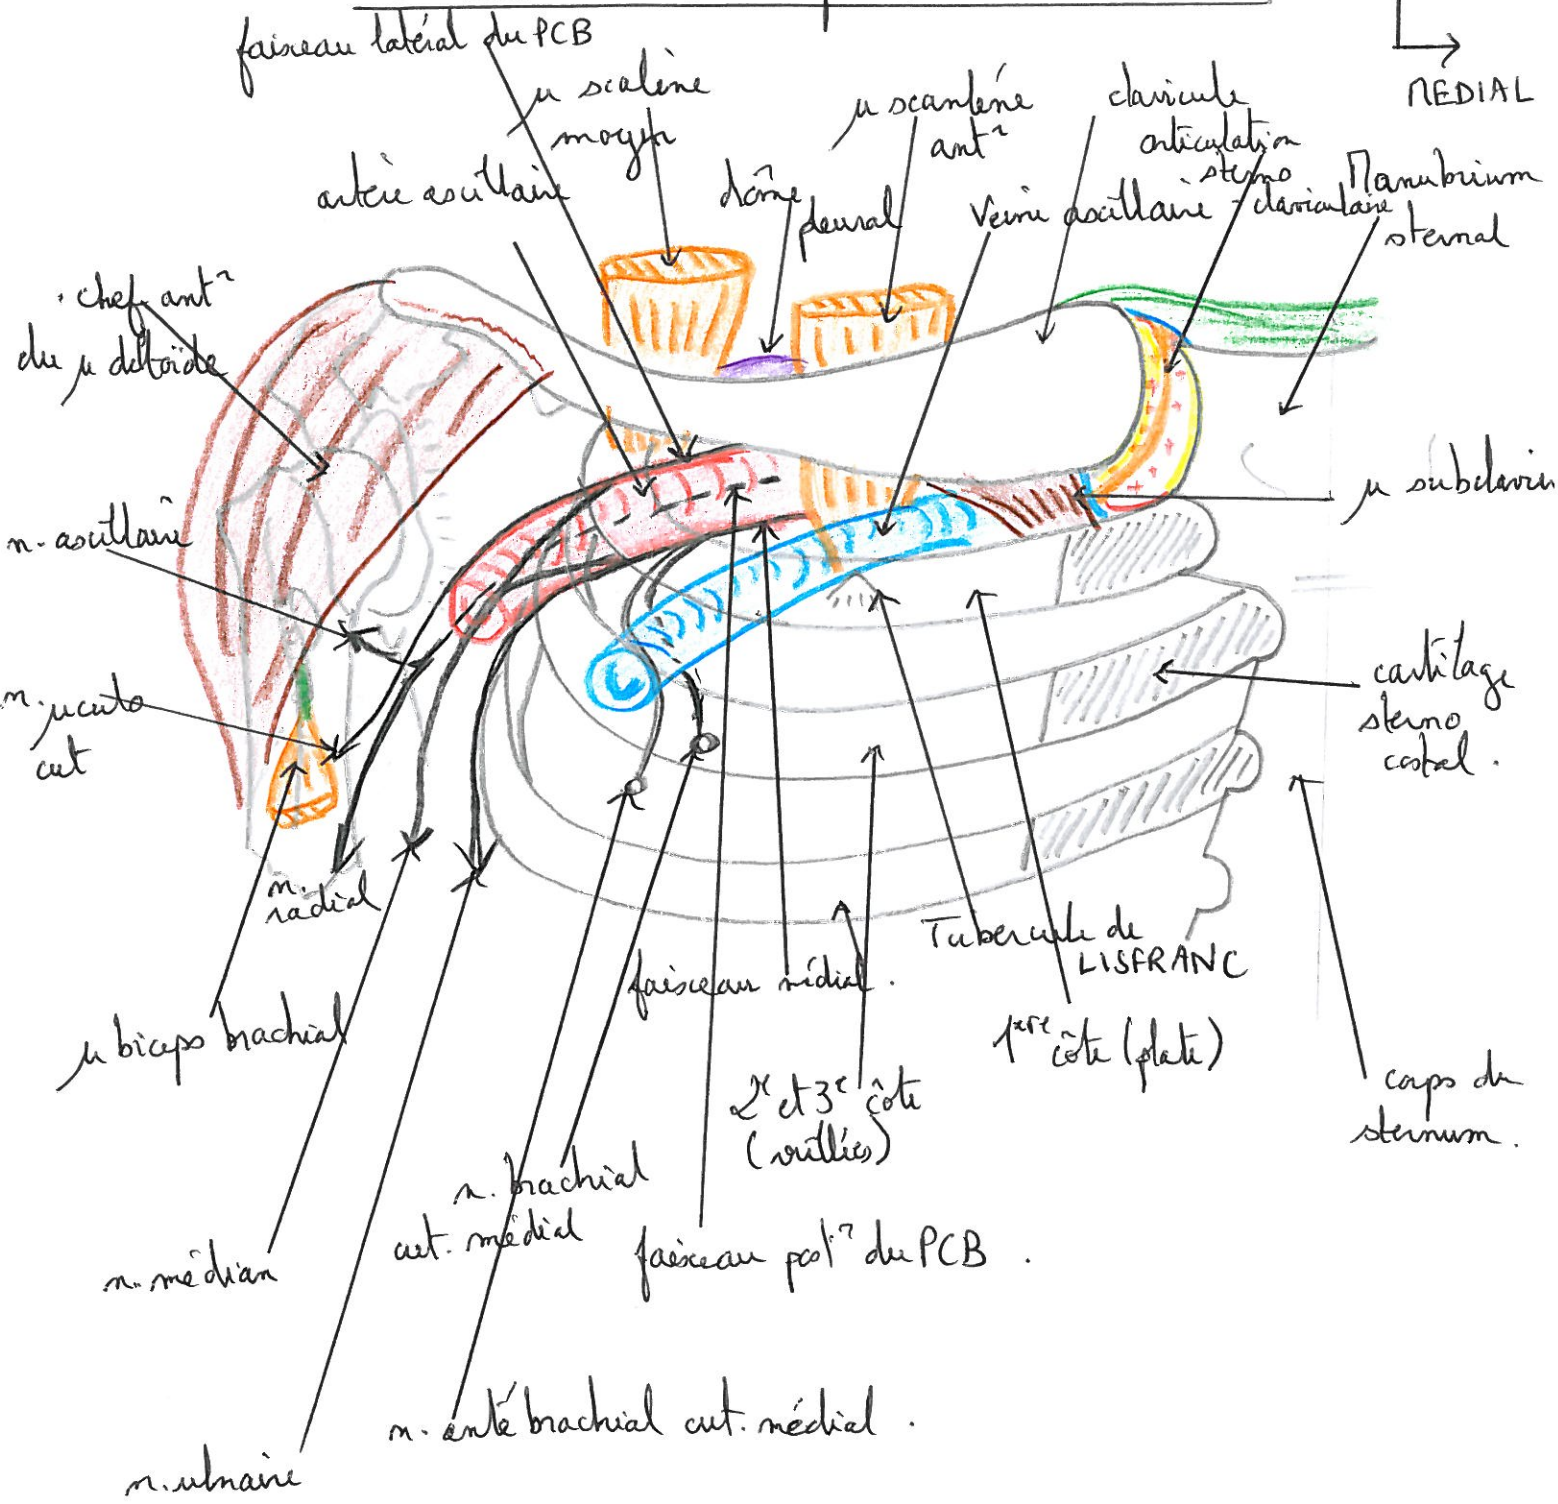 faisceau latéral du PCB
µ scalène
moyen
µ scanlène
ant^r
clavicule
articulation
sterno
- claviculaire
MÉDIAL
artère axillaire
dôme
pleural
Veine axillaire
Manubrium
sternal
. chef ant^r
du µ deltoïde
µ subclavier
n. axillaire
n. µcuto
cut
cartilage
sterno
costal .
n.
radial
Tubercule de
LISFRANC
faisceau médial .
µ biceps brachial
1ère côte (plate)
2e et 3e côte
(vrillées)
corps du
sternum .
n. brachial
cut. médial
faisceau post^r du PCB .
n. médian
n. anté brachial cut. médial .
n. ulnaire